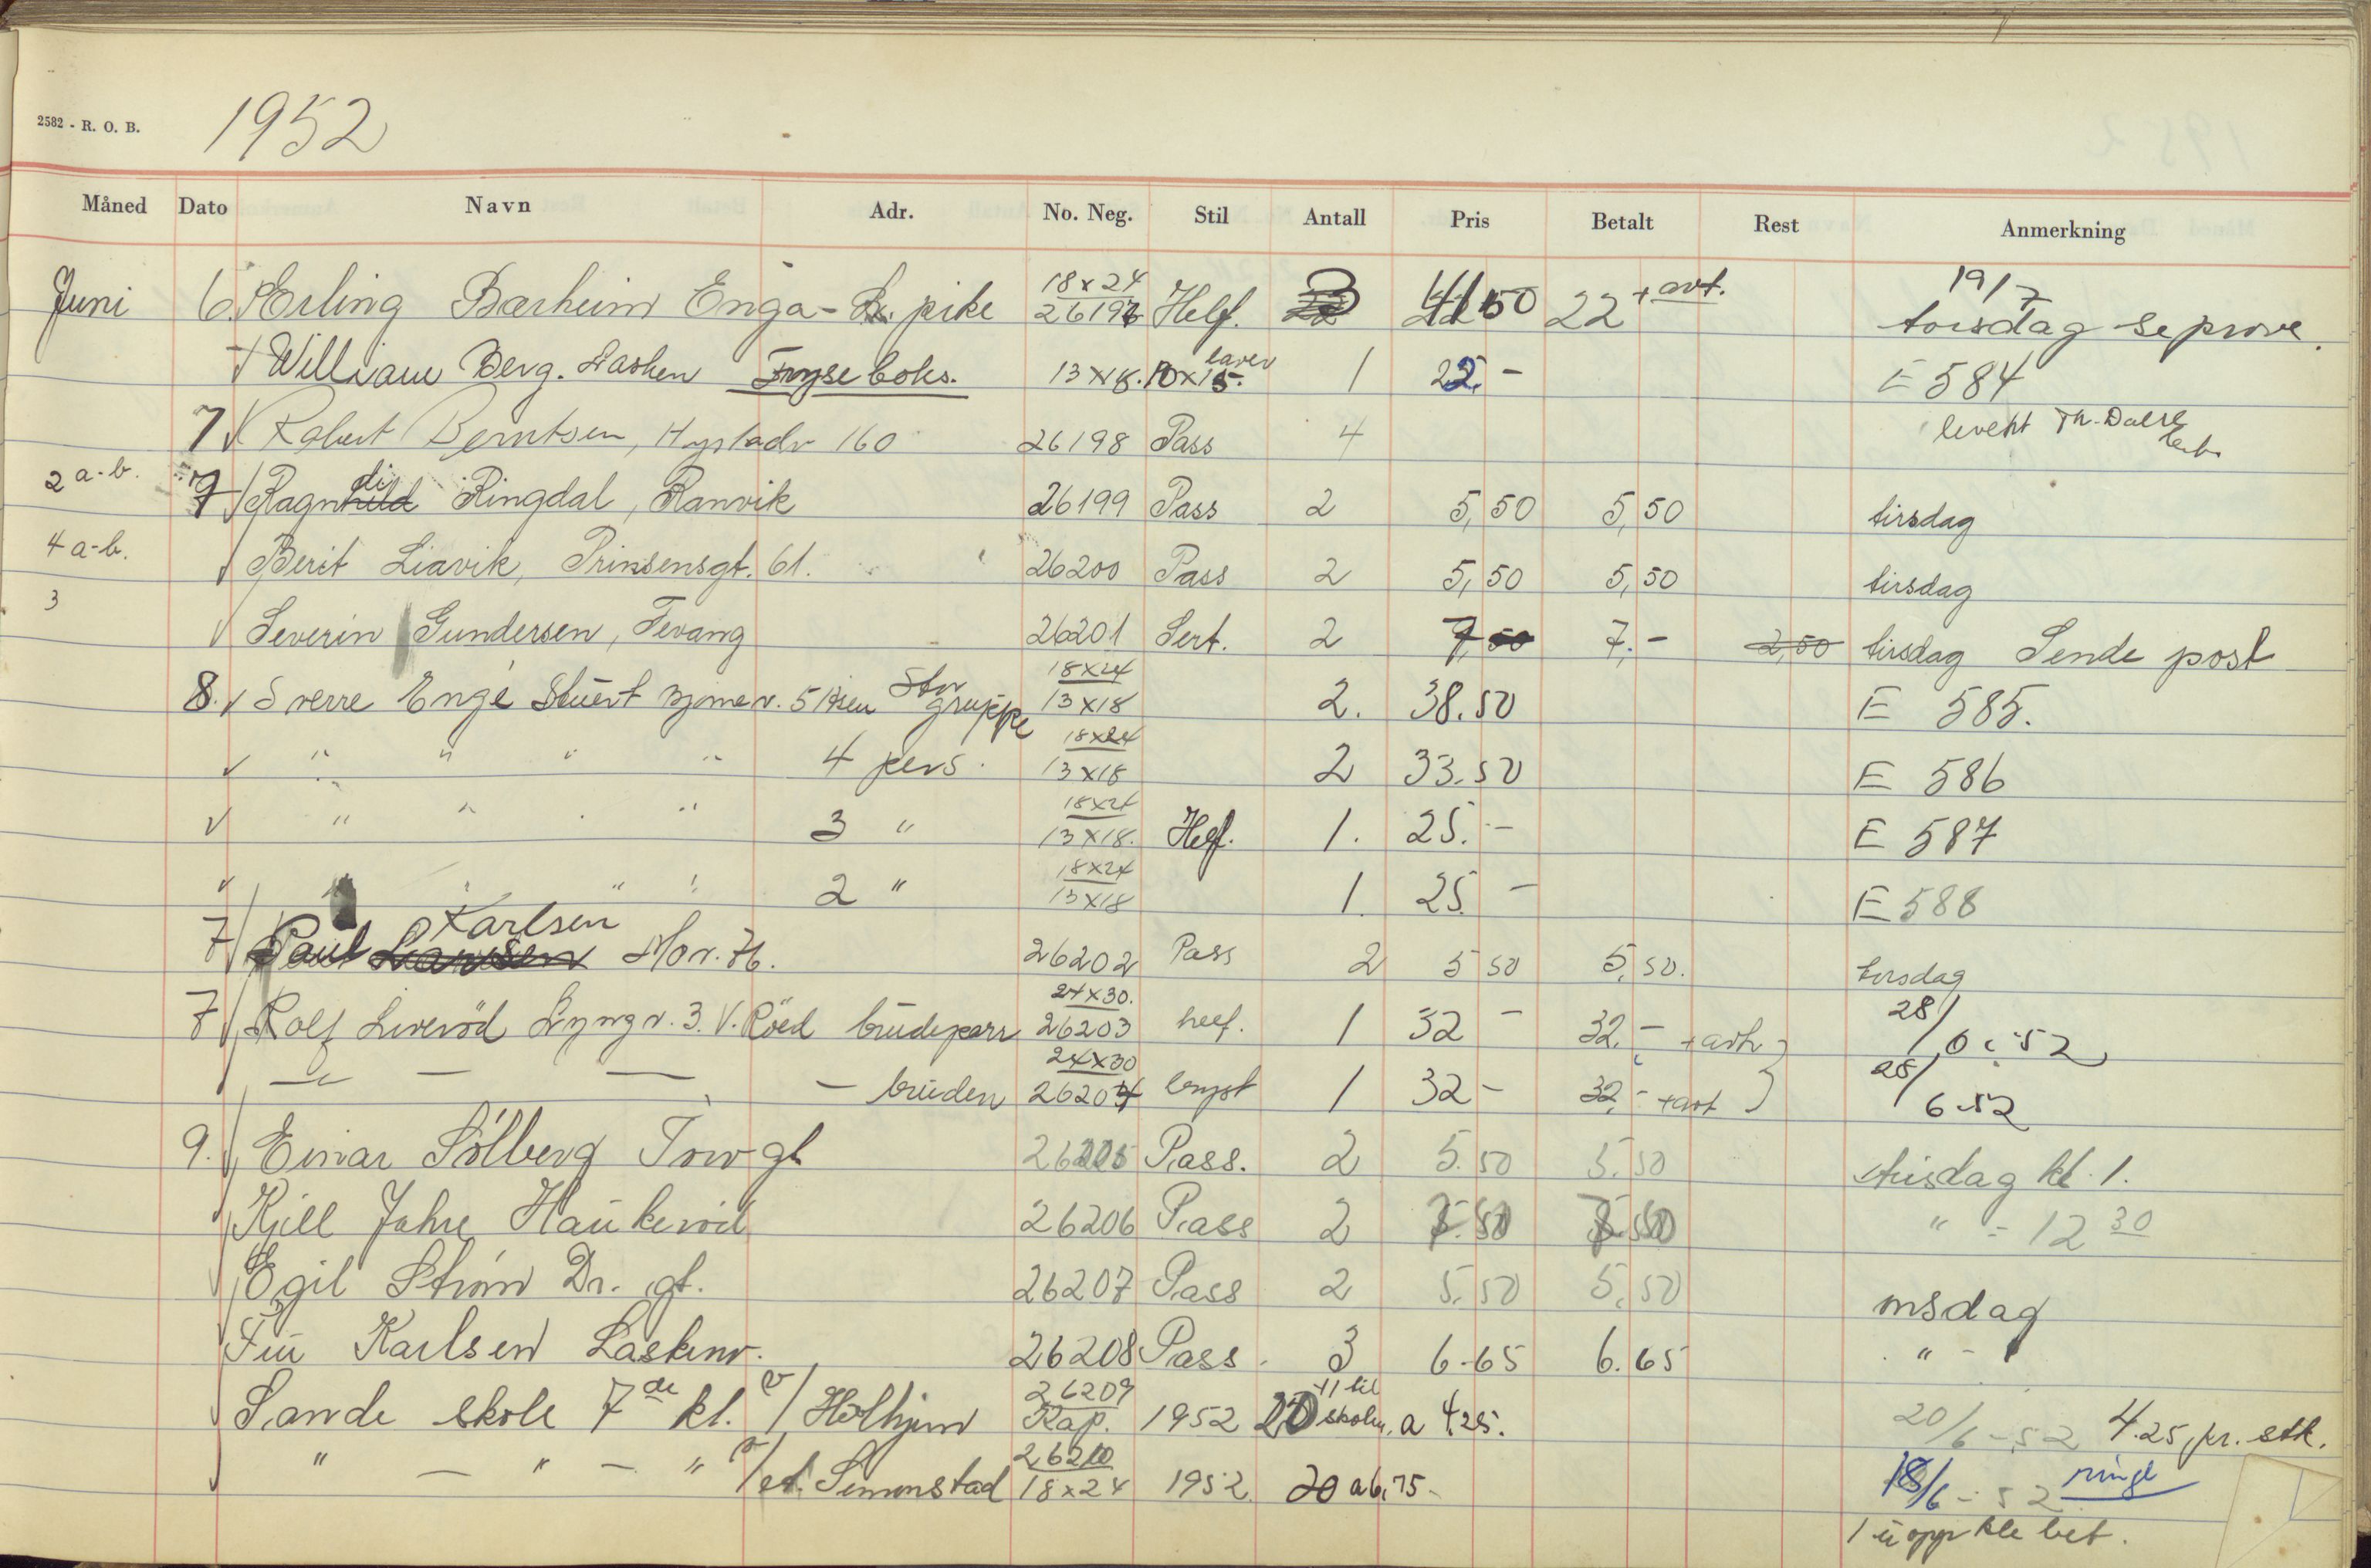 2582 - R. O. B.
1952
Måned Dato Navn Adr. No. Neg. Stil Antall Pris Betalt Rest Anmerkning
Juni 6. Erling Bærheim Enga - pike 18x24 26197 Helf. 3 41 50 22 + avt. 19/7 torsdag se prøve.
William Berg. Fryseboks. 13x18. 10x15. 1 22.- E 584
7 Robert Berntsen, 160 26198 Pass 4 levert
2 a-b. 7 Ragndi Ringdal, Ranvik 26199 Pass 2 5,50 5,50 tirsdag
4 a-b. Berit Liavik, Prinsensgt. 61. 26200 Pass 2 5,50 5,50 tirsdag
3 Severin Gundersen, Tevang 26201 Sert. 2 7,50 7.- 2,50 tirsdag Sende post
8. Sverre Enge 5 Stor gruppe 18x24 13x18 2. 38.50 E 585.
" " " " 4 pers. 18x24 13x18 2 33.50 E 586
" " " 3 " 18x24 13x18. Helf. 1. 25.- E 587
" " " 2 " 18x24 13x18 1. 25.- E 588
7 Paul Karlsen 26202 Pass 2 5 50 5,50. torsdag
7 Rolf Liverød Lyngv. 3. V. Röed brudeparr 24x30. 26203 heef. 1 32 - 32,- + avt 28/6 - 52
— — — — bruden 24x30 26204 1 32 - 32,- + avt 28/6 52
9. Einar Sólberg Torvgt 26205 Pass. 2 5.50 5.50 tirsdag kl. 1.
Kjell Jahre Haukerød 26206 Pass 2 " - 12 30
Egil Strøm Dr. gt. 26207 Pass 2 5.50 5.50 onsdag
Fru Karlsen Laskenv. 26208 Pass. 3 6.65 6.65 " -
Sande skole 7de kl. v/ Holhjem 26209 Kap. 1952 20 + 1 til skolen, a 4.25. 20/6 - 52 4.25 pr. stk.
" — " — " v/ Simonstad 26210 18x24 1952. 20 a 6,75 - 18/6 - 52 ringt